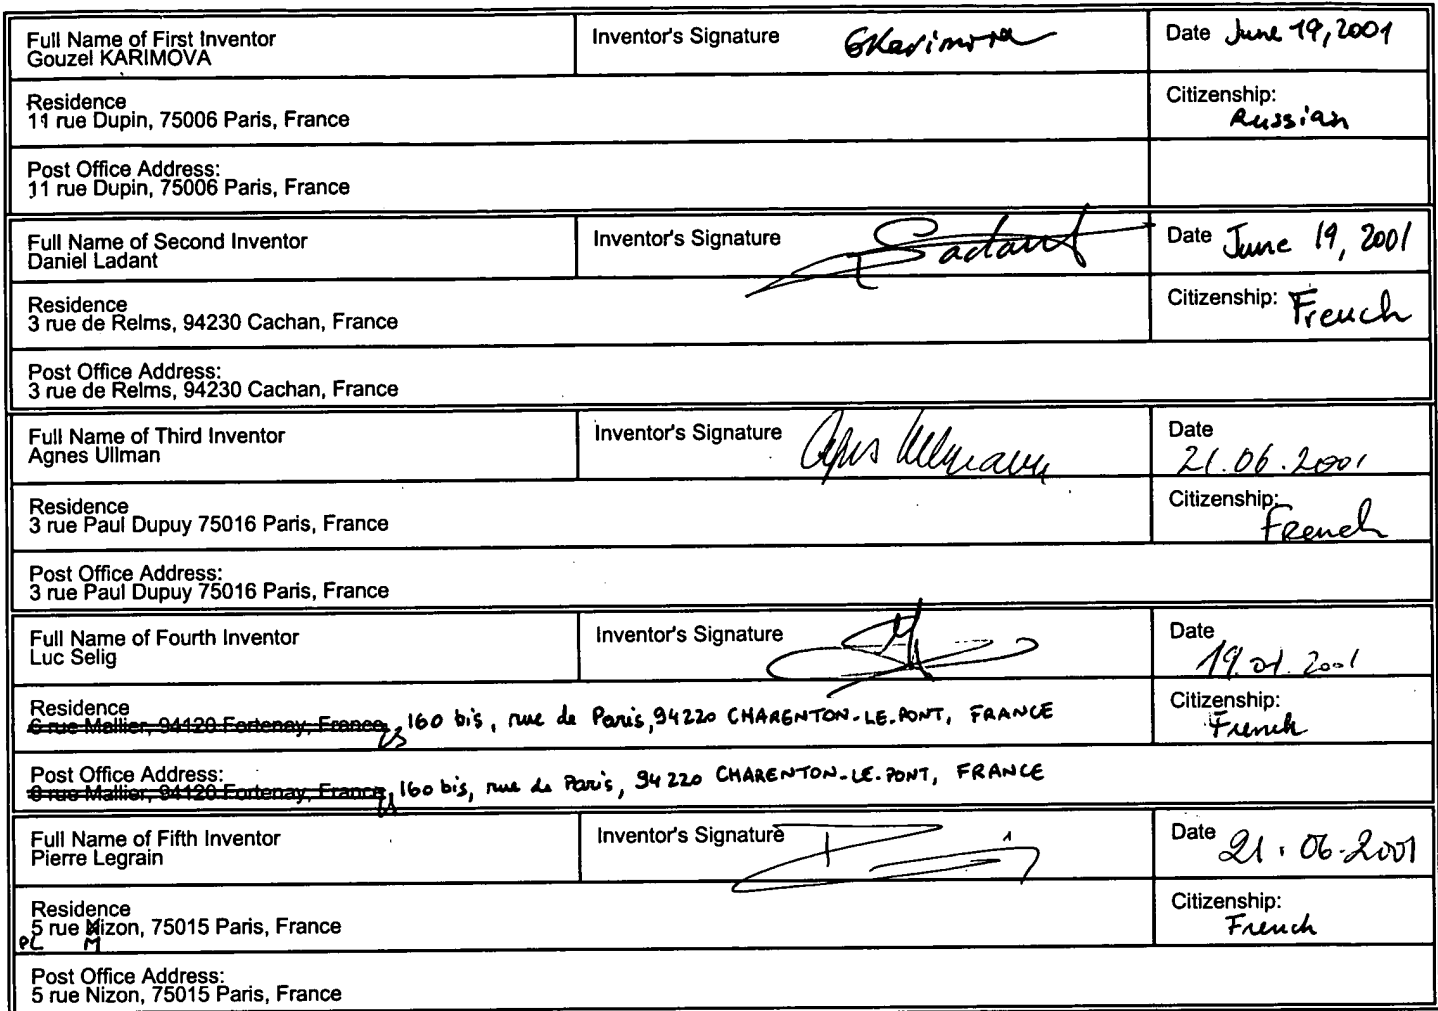 Full Name of First Inventor
Gouzel KARIMOVA
Inventor's Signature GKarimova
Date June 19, 2001
Residence
11 rue Dupin, 75006 Paris, France
Citizenship:
Russian
Post Office Address:
11 rue Dupin, 75006 Paris, France
Full Name of Second Inventor
Daniel Ladant
Inventor's Signature Ladant
Date June 19, 2001
Residence
3 rue de Relms, 94230 Cachan, France
Citizenship: French
Post Office Address:
3 rue de Relms, 94230 Cachan, France
Full Name of Third Inventor
Agnes Ullman
Inventor's Signature Agnes Ullmann
Date
21.06.2001
Residence
3 rue Paul Dupuy 75016 Paris, France
Citizenship:
French
Post Office Address:
3 rue Paul Dupuy 75016 Paris, France
Full Name of Fourth Inventor
Luc Selig
Inventor's Signature
Date
2001
Residence
6 rue Mallier, 94120 Fortenay, France, 160 bis, rue de Paris, 94220 CHARENTON-LE-PONT, FRANCE
Citizenship:
French
Post Office Address:
6 rue Mallier, 94120 Fortenay, France, 160 bis, rue de Paris, 94220 CHARENTON-LE-PONT, FRANCE
Full Name of Fifth Inventor
Pierre Legrain
Inventor's Signature
Date 21.06.2001
Residence
5 rue Nizon, 75015 Paris, France
PL M
Citizenship:
French
Post Office Address:
5 rue Nizon, 75015 Paris, France